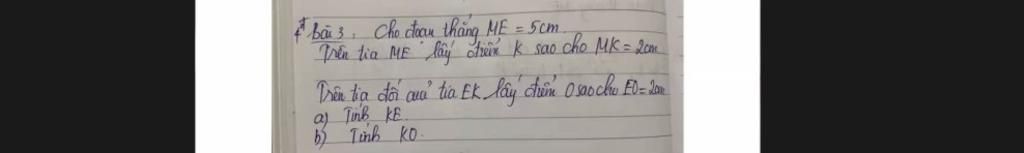 Bài 3. Cho đoạn thẳng ME = 5cm.
Trên tia ME lấy điểm K sao cho MK = 2cm
Trên tia đối của tia EK lấy điểm O sao cho EO = 2cm
a) Tính KE.
b) Tính KO.